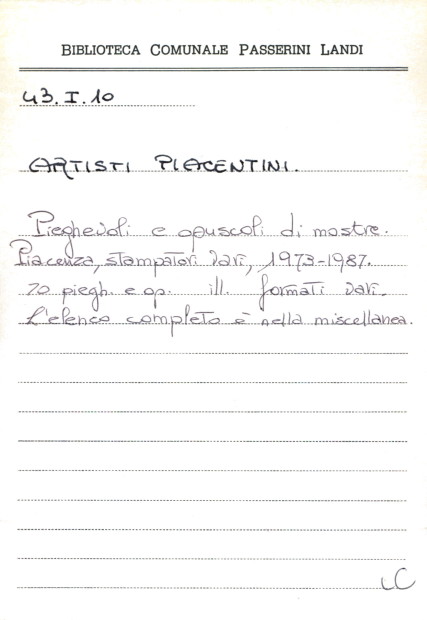 BIBLIOTECA COMUNALE PASSERINI LANDI
43.I.10
ARTISTI PIACENTINI.
Pieghevoli e opuscoli di mostre.
Piacenza, stampatori vari, 1973-1987.
20 piegh. e op. ill. formati vari.
L'elenco completo è nella miscellanea.